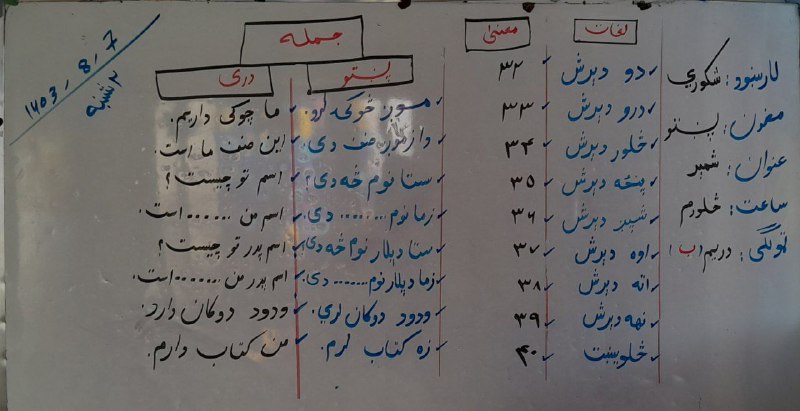 لارښود: شکوري
مضمون: پښتو
عنوان: شمېر
ساعت: څلورم
ټولګی: دریم (ب)
لغات معنی جمله
پښتو دری
دوه دېرش ۳۲ موږ څوکۍ لرو. ما چوکی داریم.
درو دېرش ۳۳ دا زموږ صنف دی. این صنف ما است.
څلور دېرش ۳۴ ستا نوم څه دی؟ اسم تو چیست؟
پنځه دېرش ۳۵ زما نوم ....... دی. اسم من ...... است.
شپږ دېرش ۳۶ ستا د پلار نوم څه دی؟ اسم پدر تو چیست؟
اوه دېرش ۳۷ زما د پلار نوم ...... دی. اسم پدر من ...... است.
اته دېرش ۳۸ ودود دوکان لري. ودود دوکان دارد.
نهه دېرش ۳۹ زه کتاب لرم. من کتاب دارم.
څلوېښت ۴۰
1403/8/7
۲ شنبه